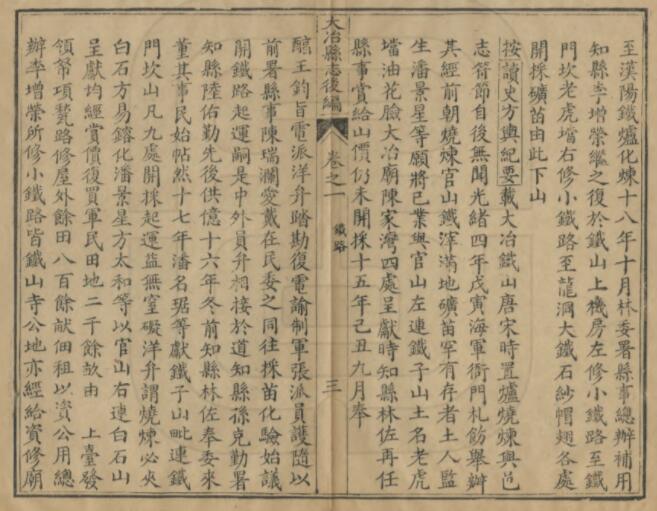 至漢陽鐵爐化煉十八年十月林委署縣事總辦補用
知縣李增榮繼之復於鐵山上機房左修小鐵路至鐵
門坎老虎壋右修小鐵路至龍洞大鐵石紗帽翅各處
開採礦苗由此下山
按讀史方輿紀要載大冶鐵山唐宋時置爐燒煉與邑
志符節自後無聞光緒四年戊寅海軍衙門札飭舉辦
其經前朝燒煉官山鐵滓滿地礦苗罕有存者土人監
生潘景星等願將己業與官山左連鐵子山土名老虎
壋油花臉大冶廟陳家灣四處呈獻時知縣林佐再任
縣事賞給山價仍未開採十五年己丑九月奉
大冶縣志後編 卷之一 鐵路 三
醇王鈞旨電派洋弁踏勘復電諭制軍張派員護隨以
前署縣事陳瑞瀾愛戴在民委之同往採苗化驗始議
開鐵路起運嗣是中外員弁相接於道知縣孫克勤署
知縣陸佑勤先後供億十六年冬前知縣林佐奉委來
董其事民始帖然十七年潘名琚等獻鐵子山毗連鐵
門坎山凡九處開採起運益無窒礙洋弁謂燒煉必夾
白石方易鎔化潘景星方太和等以官山右連白石山
呈獻均經賞價復買軍民田地二千餘畝由 上臺發
領帑項甃路修屋外餘田八百餘畝佃租以資公用總
辦李增榮所修小鐵路皆鐵山寺公地亦經給資修廟